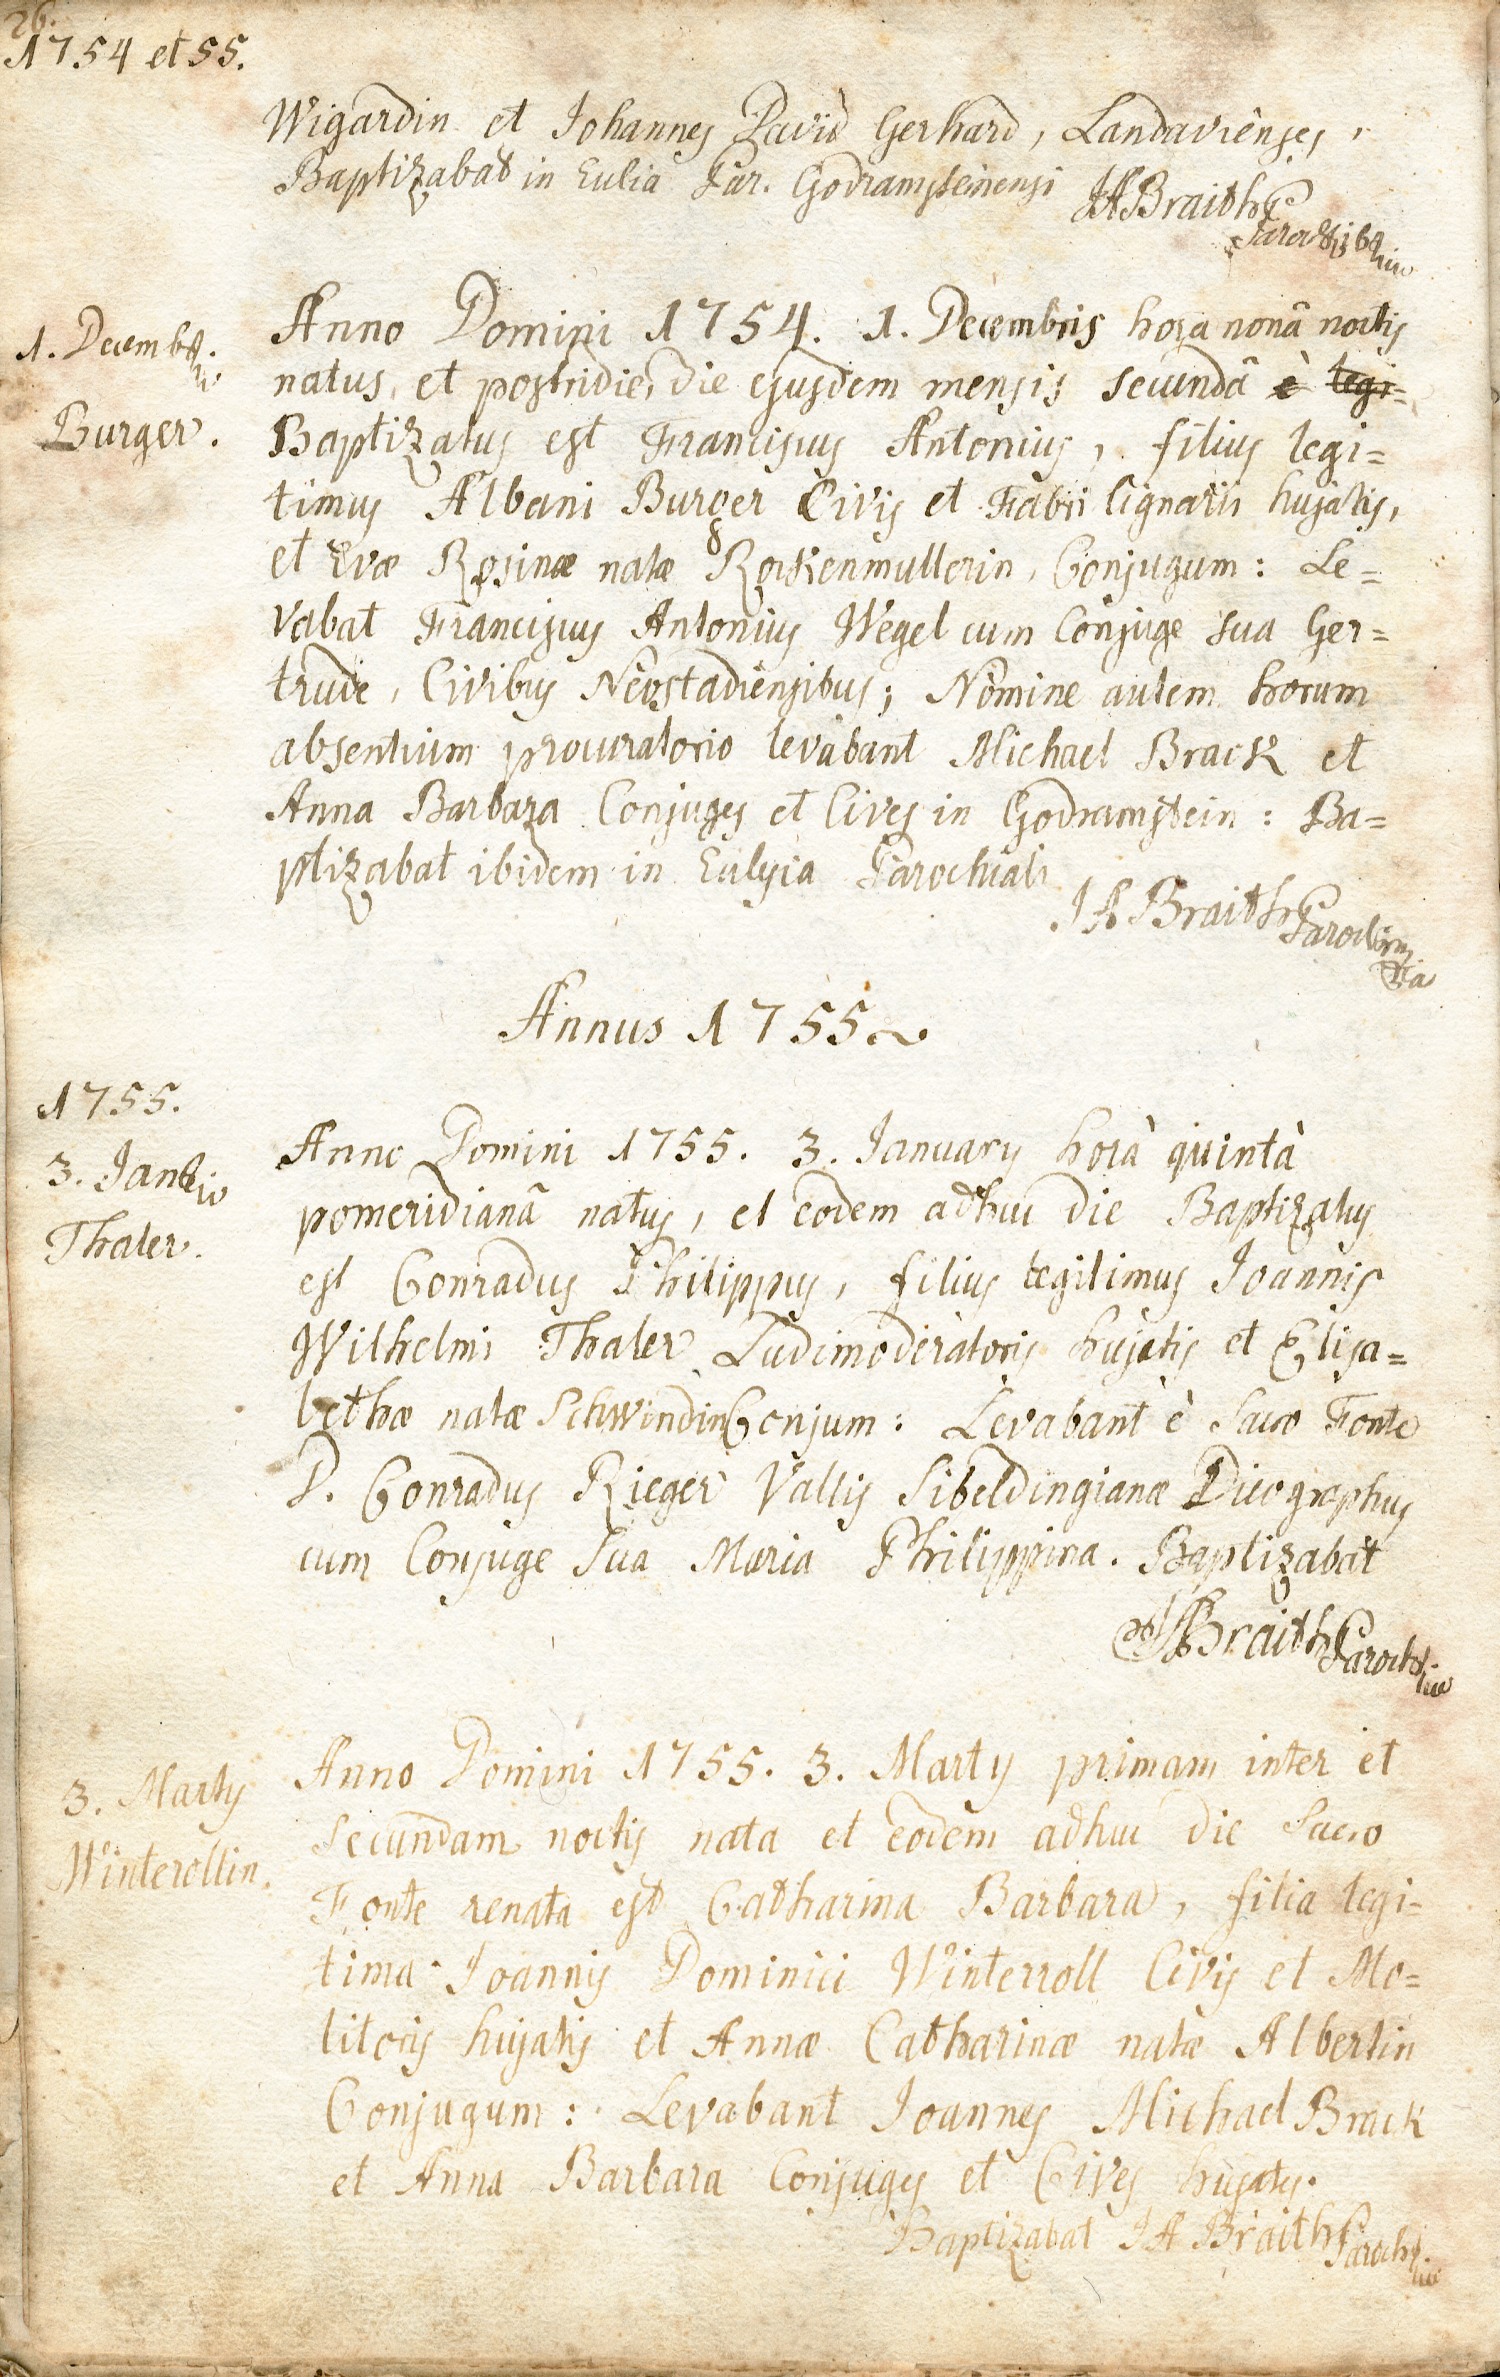 26.
1754 et 55.
Wigardin et Johannes David Gerhard, Landavienses,
Baptizabat in Eclia Par. Godramsteinensi JABraith
1. Decembr.
Burger.
Anno Domini 1754. 1. Decembris hora nonâ noctis
natus, et postridie, die ejusdem mensis secundâ è legi=
Baptizatus est Franciscus Antonius, filius legi=
timus Albani Burger Civis et Fabri lignarii hujatis,
et Evæ Rosinæ natæ Rockenmullerin, Conjugum: Le=
vabat Franciscus Antonius Wegel cum Conjuge sua Ger=
trude, Civibus Neostadiensibus; Nomine autem horum
absentium procuratorio levabant Michael Brack et
Anna Barbara Conjuges et Cives in Godramstein: Ba=
ptizabat ibidem in Eclysia Parochiali
JA Braith
Annus 1755
1755.
3. Jan
Thaler.
Anno Domini 1755. 3. January horà quintà
pomeridianâ natus, et eodem adhuc die Baptizatus
est Conradus Philippus, filius legitimus Joannis
Wilhelmi Thaler Ludimoderatoris hujatis et Elisa=
bethæ natæ Schwindin Conjum: Levabant è Sacro Fonte
D. Conradus Rieger Vallis Sibeldingianæ Dicographus
cum Conjuge sua Maria Philippina. Baptizabat
JABraith Paroch
3. Marty
Winterollin.
Anno Domini 1755. 3. Marty primam inter et
secundam noctis nata et eodem adhuc die Sacro
Fonte renata est Catharina Barbara, filia legi=
tima Joannis Dominici Winterroll Civis et Mo=
litoris hujatis et Annæ Catharinæ natæ Albertin
Conjugum: Levabant Joannes Michael Brack
et Anna Barbara Conjuges et Cives hujates.
Baptizabat JA Braith Paroch